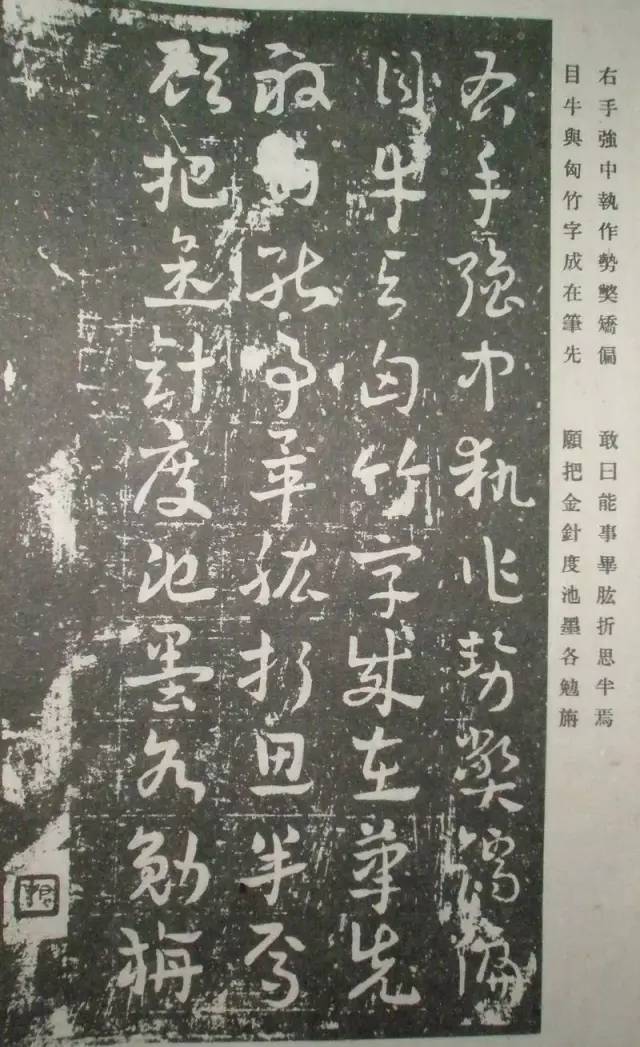 右手強中執作勢獘矯偏　敢曰能事畢肱折思半焉
目牛與匈竹字成在筆先　願把金針度池墨各勉旃
右手強中執作勢獘矯偏
目牛與匈竹字成在筆先
敢曰能事畢肱折思半焉
願把金針度池墨各勉旃